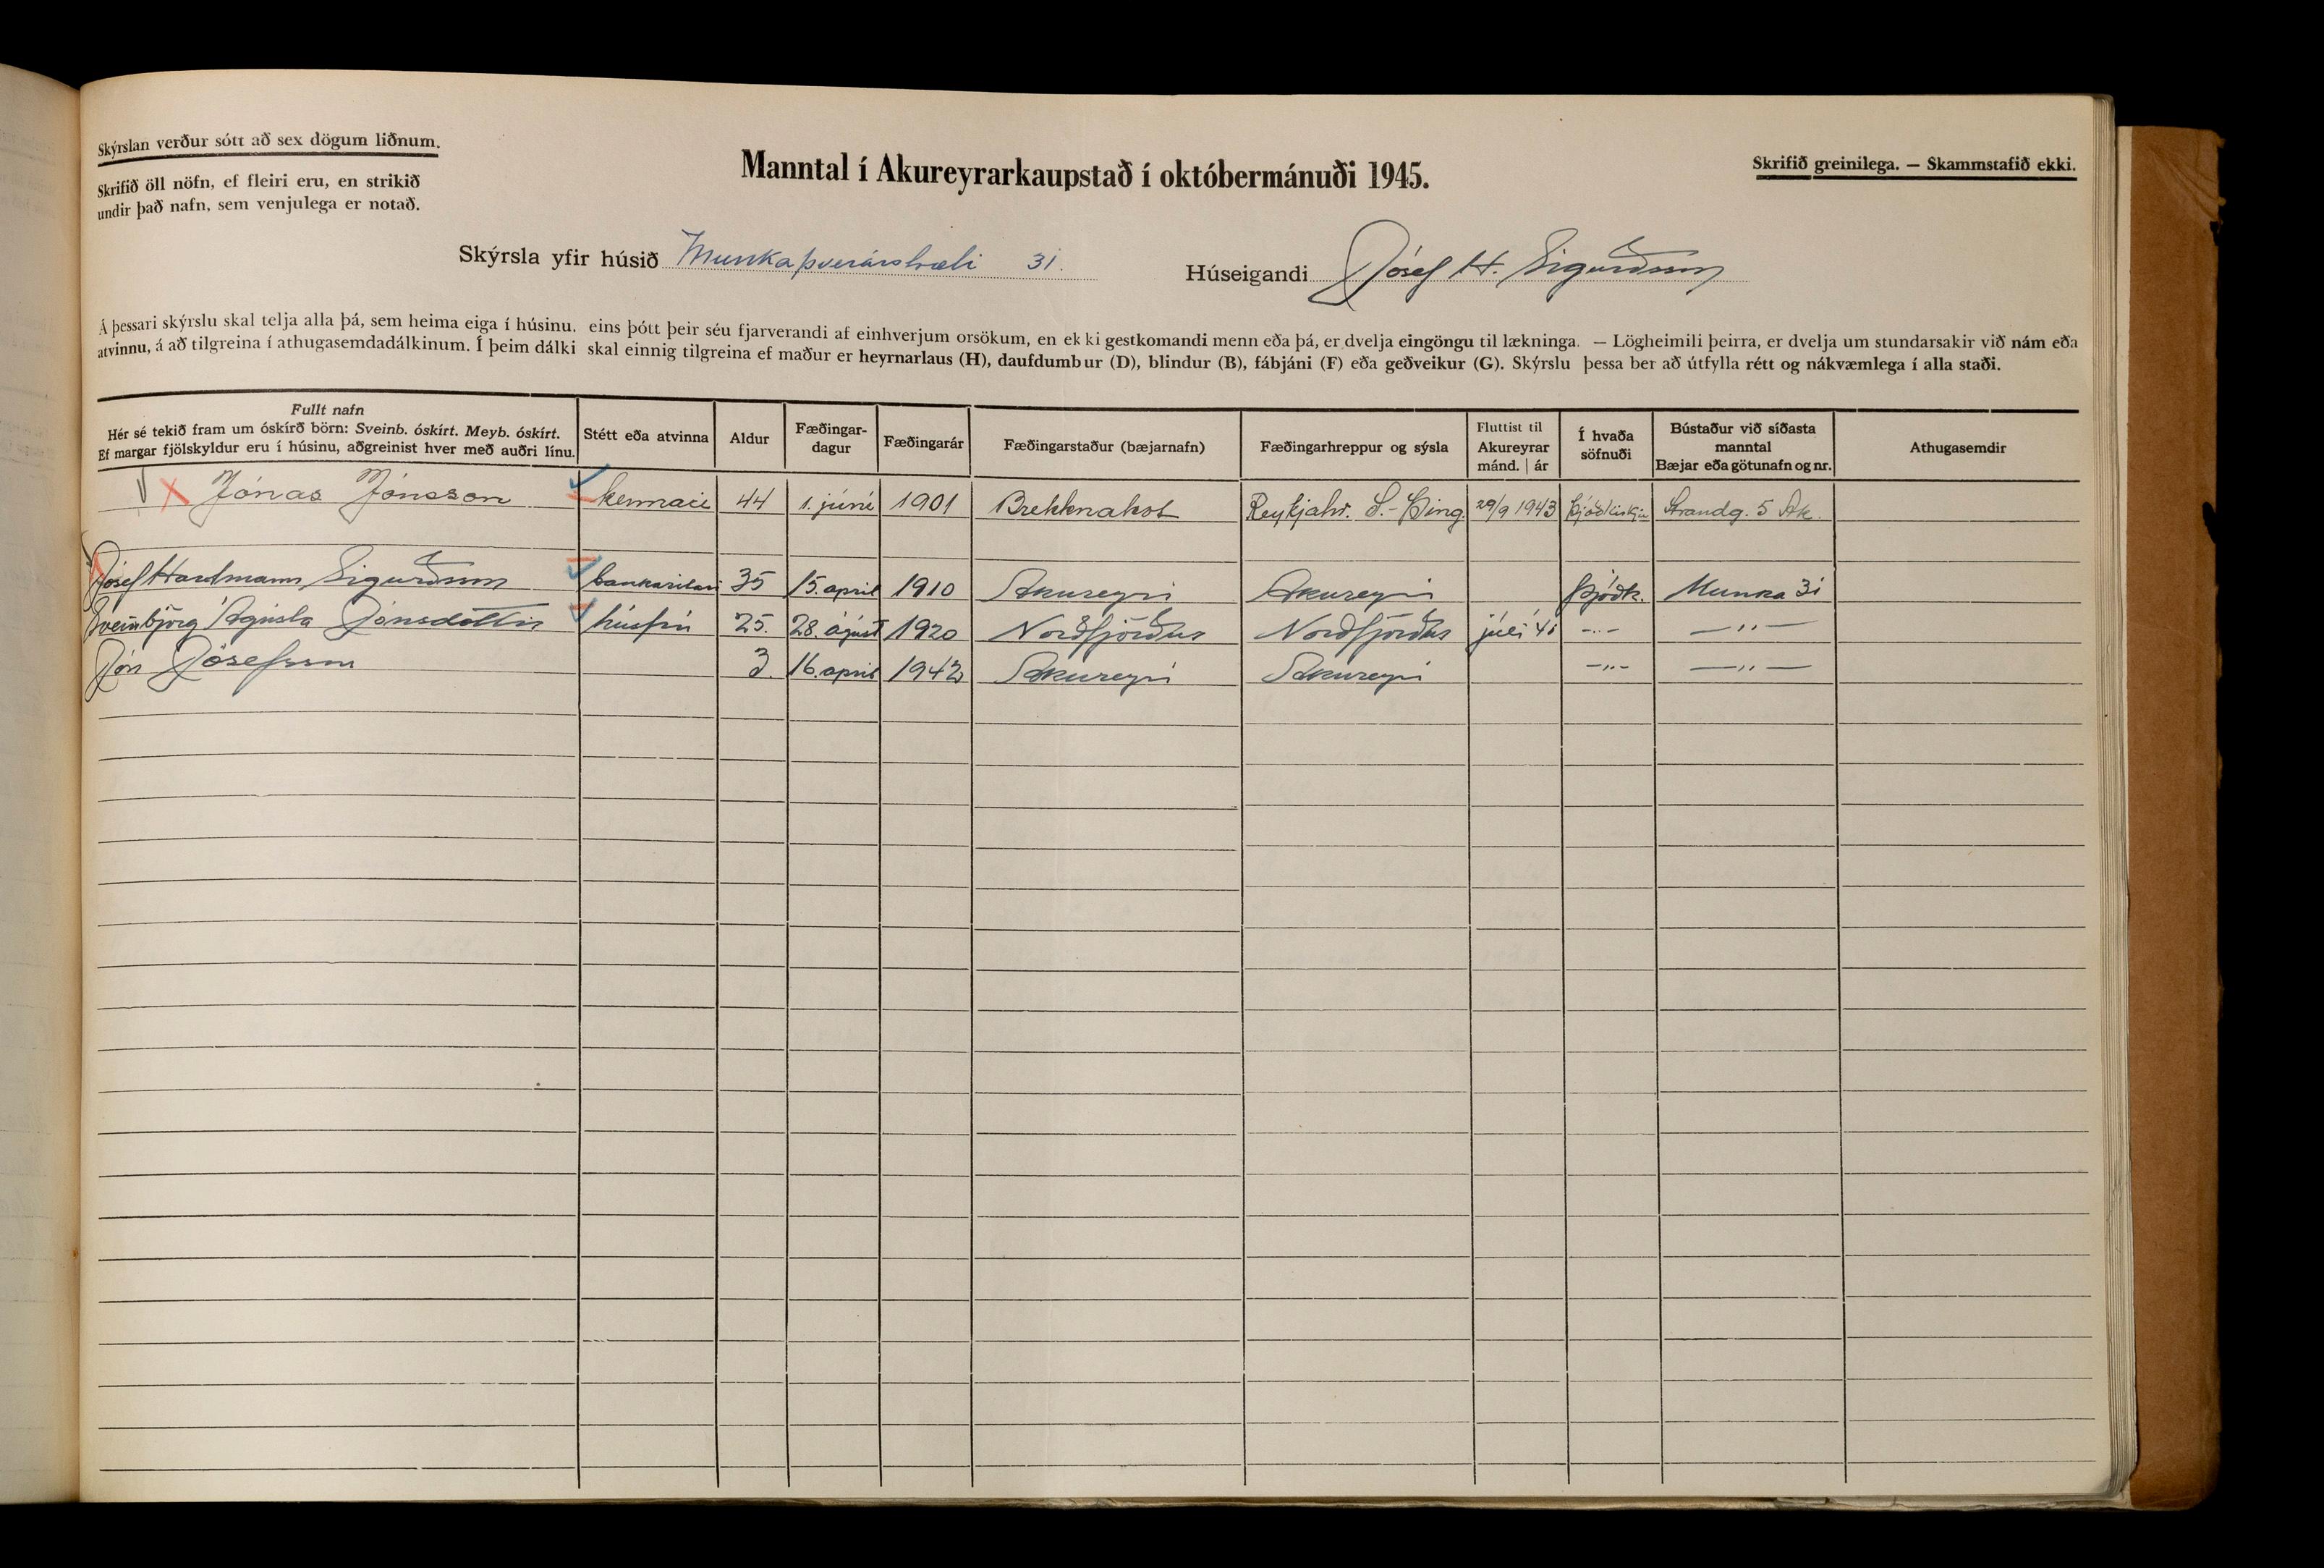 Skýrslan verður sótt að sex dögum liðnum.
Skrifið öll nöfn, ef fleiri eru, en strikið
undir það nafn, sem venjulega er notað.
Manntal í Akureyrarkaupstað í októbermánuði 1945.
Skrifið greinilega. — Skammstafið ekki.
Skýrsla yfir húsið Munkaþverárstræti 31.
Húseigandi Jósef H. Sigurðsson
Á þessari skýrslu skal telja alla þá, sem heima eiga í húsinu, eins þótt þeir séu fjarverandi af einhverjum orsökum, en ekki gestkomandi menn eða þá, er dvelja eingöngu til lækninga. — Lögheimili þeirra, er dvelja um stundarsakir við nám eða
atvinnu, á að tilgreina í athugasemdadálkinum. Í þeim dálki skal einnig tilgreina ef maður er heyrnarlaus (H), daufdumbur (D), blindur (B), fábjáni (F) eða geðveikur (G). Skýrslu þessa ber að útfylla rétt og nákvæmlega í alla staði.
Fullt nafn
Hér sé tekið fram um óskírð börn: Sveinb. óskírt. Meyb. óskírt.
Ef margar fjölskyldur eru í húsinu, aðgreinist hver með auðri línu.
Stétt eða atvinna
Aldur
Fæðingar-
dagur
Fæðingarár
Fæðingarstaður (bæjarnafn)
Fæðingarhreppur og sýsla
Fluttist til
Akureyrar
mánd. | ár
Í hvaða
söfnuði
Bústaður við síðasta
manntal
Bæjar eða götunafn og nr.
Athugasemdir
Jónas Jónsson kennari 44 1. júní 1901 Brekknakot Reykjahr. S.-Þing. 29/9 1943 Þjóðkirkju Strandg. 5 Ak.
Jósef Hartmann Sigurðsson bankaritari 35 15. apríl 1910 Akureyri Akureyri Þjóðk. Munka 31
Sveinbjörg Ágústa Jónsdóttir húsfrú 25. 28. ágúst 1920 Norðfjörður Norðfjörður júlí 41 -"- -"-
Jón Jósefsson 3. 16. apríl 1942 Akureyri Akureyri -"- -"-